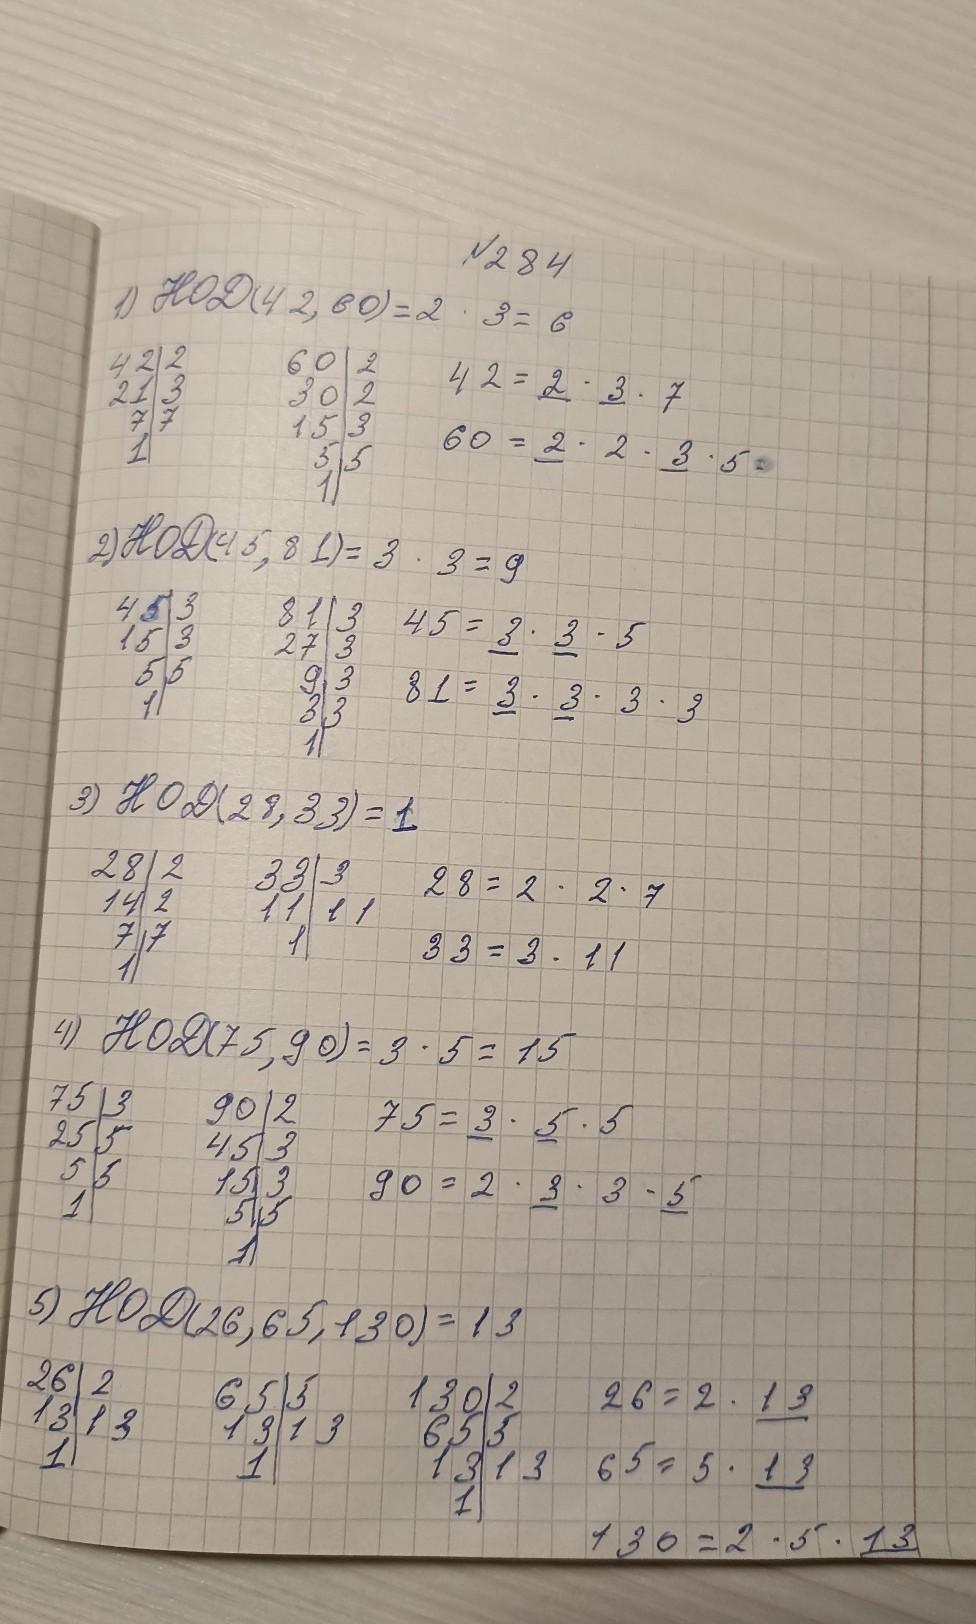 №284
1) НОД(42,60)=2 · 3= 6
42|2 60|2 42=2 · 3 · 7
21|3 30|2
7|7 15|3 60 = 2 · 2 · 3 · 5
1| 5|5
1|
2) НОД(45,81)= 3 · 3 = 9
45|3 81|3 45 = 3 · 3 · 5
15|3 27|3
5|5 9|3 81 = 3 · 3 · 3 · 3
1| 3|3
1|
3) НОД(28,33)=1
28|2 33|3 28=2 · 2 · 7
14|2 11|11
7|7 1| 33=3 · 11
1|
4) НОД(75,90)=3 · 5 = 15
75|3 90|2 75=3 · 5 · 5
25|5 45|3
5|5 15|3 90 = 2 · 3 · 3 · 5
1| 5|5
1|
5) НОД(26,65,130)=13
26|2 65|5 130|2 26=2 · 13
13|13 13|13 65|5
1| 1| 13|13 65=5 · 13
1|
130=2 · 5 · 13